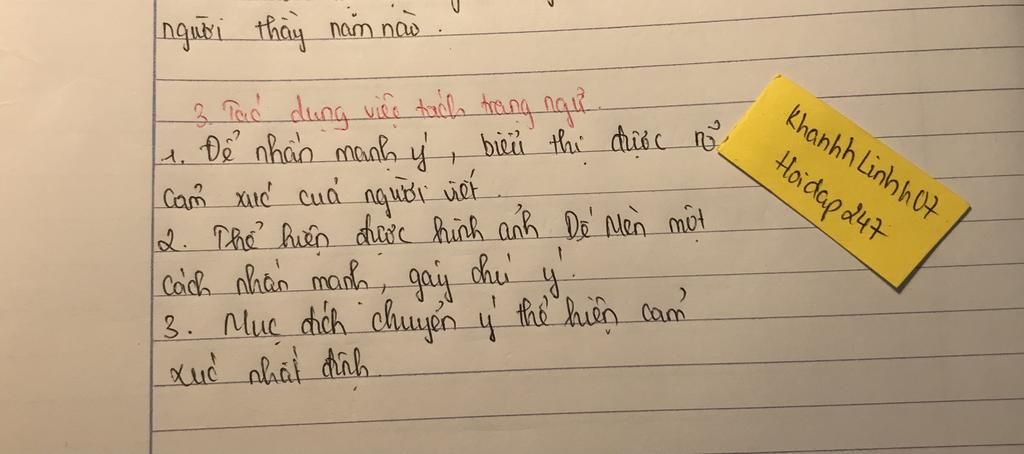 người thầy năm nào.
3. Tác dụng việc tách trạng ngữ.
1. Để nhấn mạnh ý, biểu thị được rõ
cảm xúc của người viết.
2. Thể hiện được hình ảnh Dế Mèn một
cách nhấn mạnh, gây chú ý.
3. Mục đích chuyển ý thể hiện cảm
xúc nhất định
KhanhhLinhh07
Hoidap247